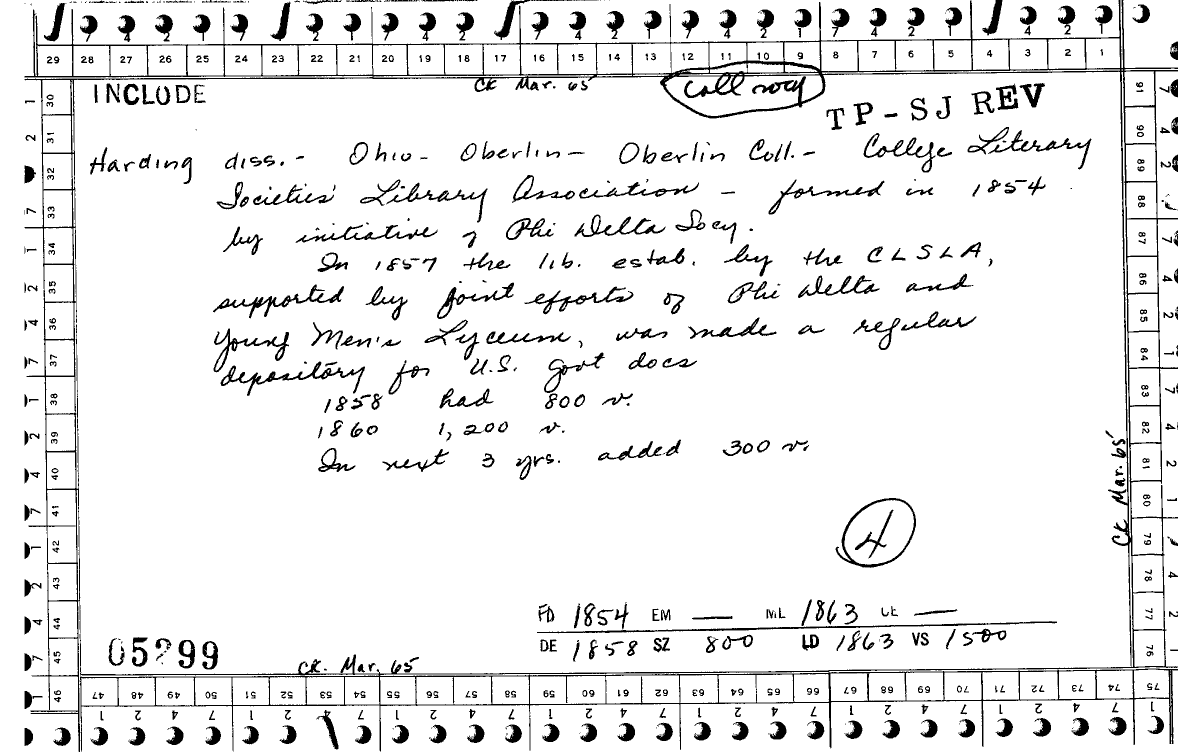 7 4 2 1 7 4 2 1 7 4 2 1 7 4 2 1 7 4 2 1 7 4 2 1
29 28 27 26 25 24 23 22 21 20 19 18 17 16 15 14 13 12 11 10 9 8 7 6 5 4 3 2 1
INCLUDE CK Mar. 65 Coll socy
TP-SJ REV
Harding diss. - Ohio - Oberlin - Oberlin Coll. - College Literary
Societies' Library Association - formed in 1854
by initiative of Phi Delta Socy.
In 1857 the lib. estab. by the CLSLA,
supported by joint efforts of Phi Delta and
Young Men's Lyceum, was made a regular
depository for U.S. govt docs
1858 had 800 v.
1860 1,200 v.
In next 3 yrs. added 300 v.
4
FD 1854 EM — ML 1863 CE —
DE 1858 SZ 800 LD 1863 VS 1500
05299
CK. Mar. 65
CK Mar. 65
30 31 32 33 34 35 36 37 38 39 40 41 42 43 44 45 46
91 90 89 88 87 86 85 84 83 82 81 80 79 78 77 76
47 48 49 50 51 52 53 54 55 56 57 58 59 60 61 62 63 64 65 66 67 68 69 70 71 72 73 74 75